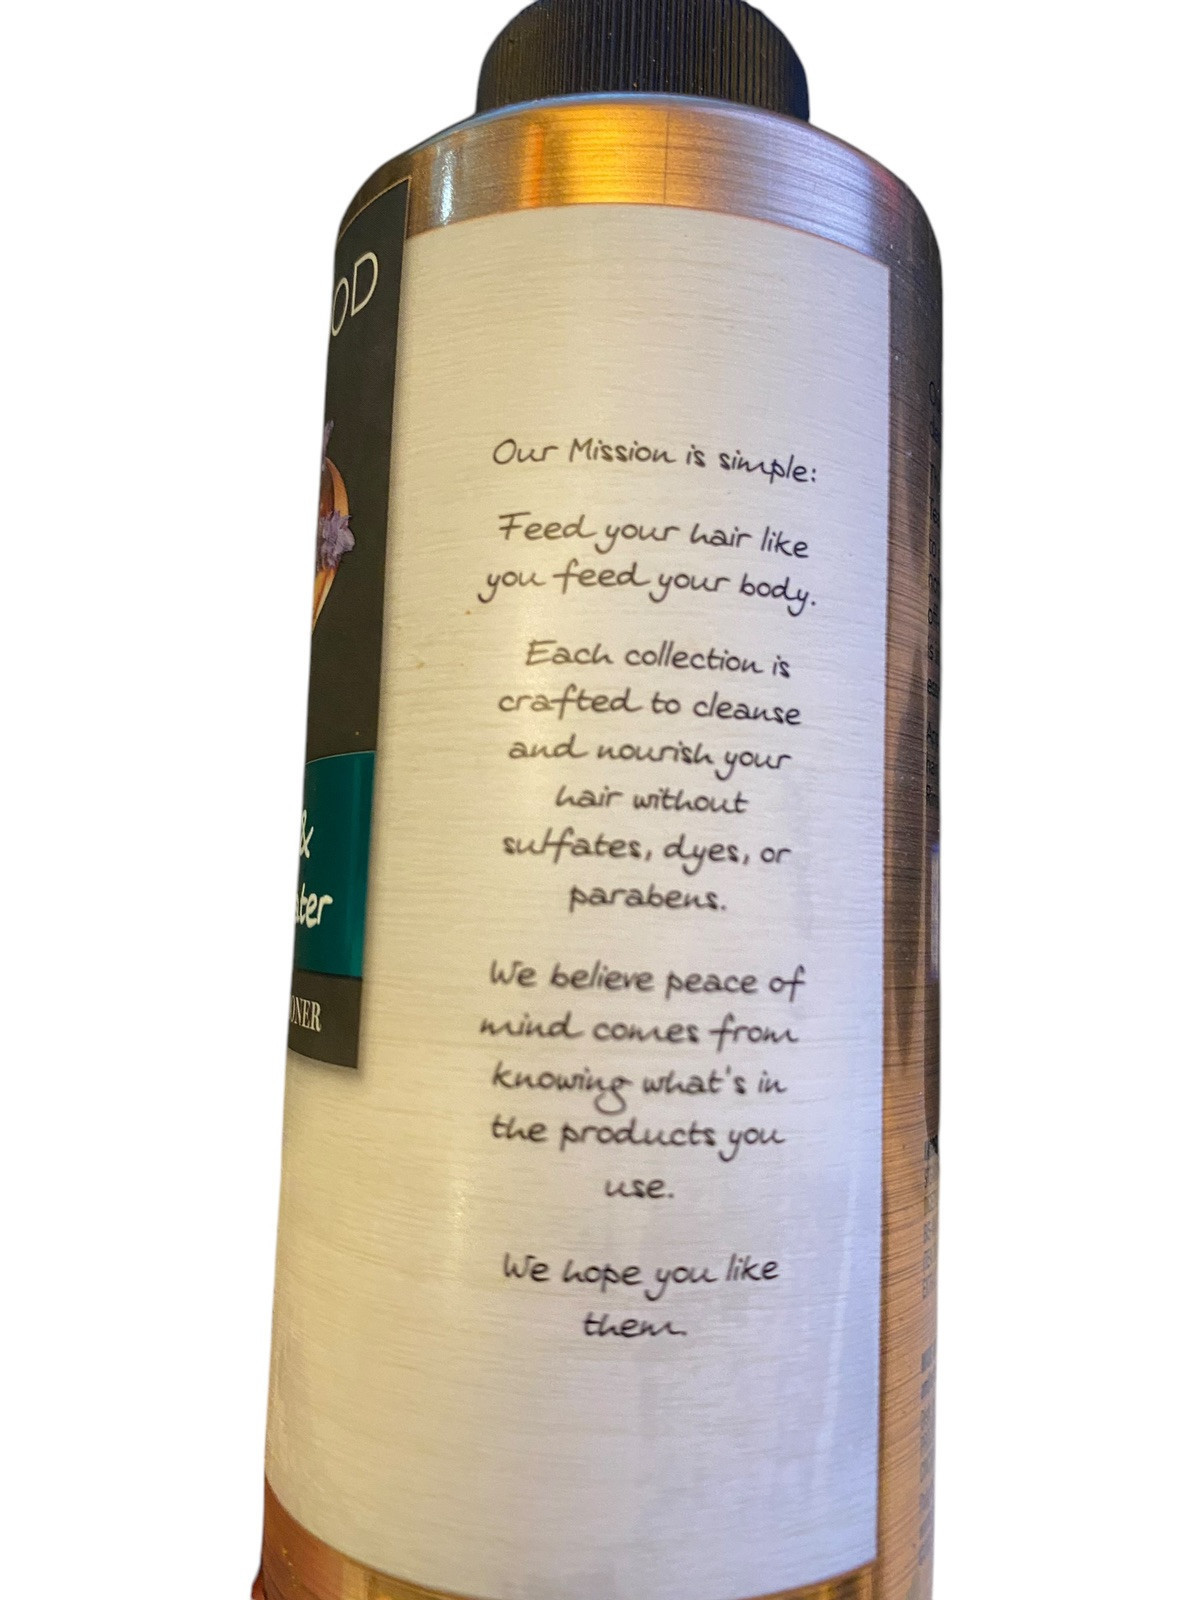 OD
&
ONER
Our Mission is simple:
Feed your hair like
you feed your body.
Each collection is
crafted to cleanse
and nourish your
hair without
sulfates, dyes, or
parabens.
We believe peace of
mind comes from
knowing what's in
the products you
use.
We hope you like
them.